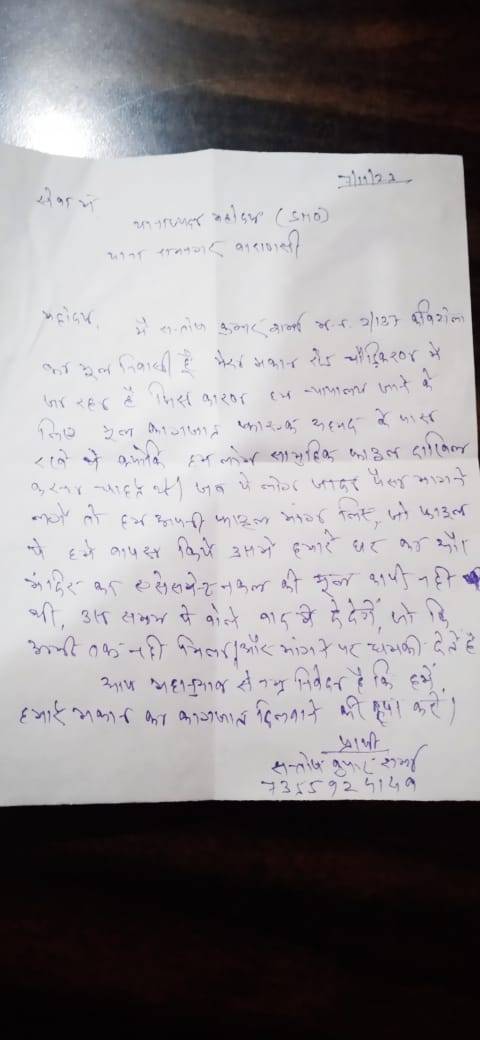 7/11/22
सेवा में
थानाध्यक्ष महोदय (SHO)
थाना रामनगर वाराणसी
महोदय,
मैं सन्तोष कुमार शर्मा म.न. 2/137
का मूल निवासी हूँ मेरा मकान रोड चौड़ीकरण में
जा रहा है जिस कारण हम न्यायालय जाने के
लिए मूल कागजात अहमद के पास
रखे थे क्योंकि हम लोग सामुहिक फाइल दाखिल
करना चाहते थे। जब ये लोग ज्यादा पैसा मांगने
लगे तो हम अपनी फाइल मांग लिए, जो फाइल
ये हमें वापस किये उसमें हमारे घर का और
मंदिर का नकल की मूल कापी नहीं
थी, उस समय ये बोले बाद में दे देगें, जो कि
अभी तक नहीं मिला। और मांगने पर धमकी देते है
आप महानुभाव से नम्र निवेदन है कि हमें,
हमारे मकान का कागजात दिलवाने की कृपा करें।
प्रार्थी
सन्तोष कुमार शर्मा
7355924149